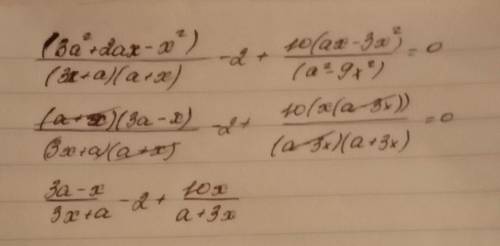 (3a²+2ax-x²)/(3x+a)(a+x) -2 + 10(ax-3x²)/(a²-9x²) = 0
(a+x)(3a-x)/3x+a(a+x) -2+ 10(x(a-3x))/(a-3x)(a+3x) = 0
3a-x/3x+a -2 + 10x/a+3x